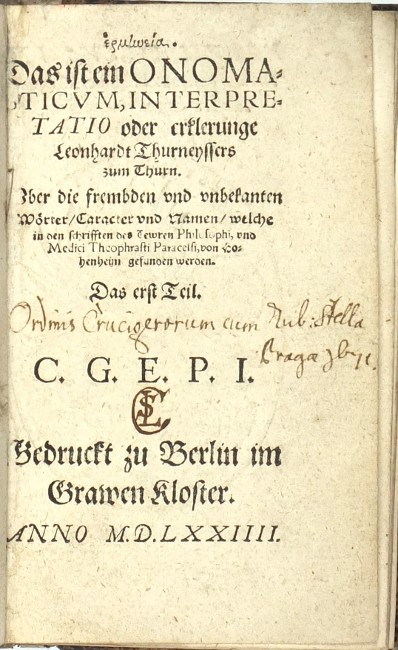 ἑρμηνεία.
Das ist ein ONOMA-
STICVM, INTERPRE-
TATIO oder erklerunge
Leonhardt Thurneyssers
zum Thurn.
Vber die frembden vnd vnbekanten
Wörter/Caracter vnd Namen/welche
in den schrifften des Tewren Philosophi, vnd
Medici Theophrasti Paracelsi, von Ho-
henheim gefunden werden.
Das erst Teil.
Ordinis Crucigerorum cum Rub: Stella
Pragæ
C. G. E. P. I.
Gedruckt zu Berlin im
Grawen Kloster.
ANNO M.D.LXXIIII.